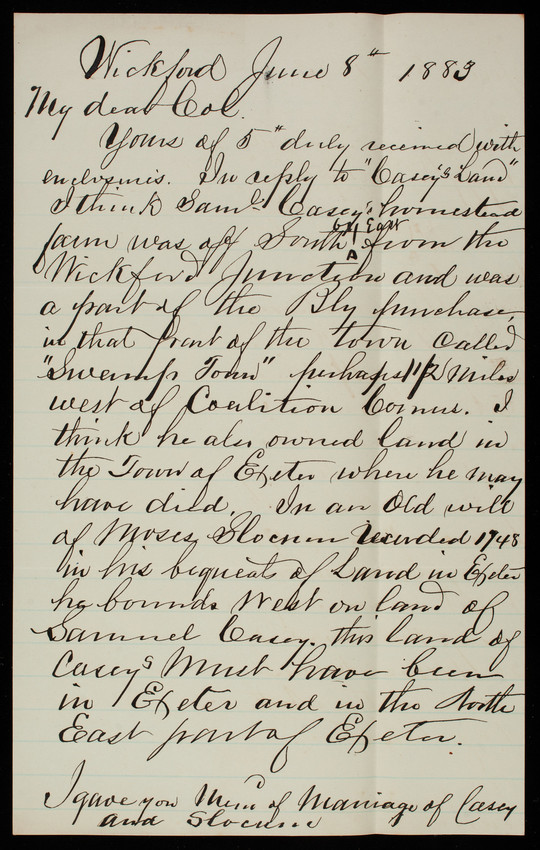 Wickford June 8th 1883
My dear Col.
Yours of 5" duly received with
enclosures. In reply to "Casey's Land"
I think Saml. Casey's homestead
farm was off South East from the
Wickford Junction and was
a part of the Bly purchase,
in that part of the town called
"Swamp Town" perhaps 1 1/2 Miles
west of Coalition Corner. I
think he also owned land in
the Town of Exeter where he may
have died. In an Old will
of Moses Slocum recorded 1748
in his bequests of Land in Exeter
he bounds West on land of
Samuel Casey. this land of
Casey's Must have been
in Exeter and in the North
East part of Exeter.
I gave you Memo of Marriage of Casey
and Slocum